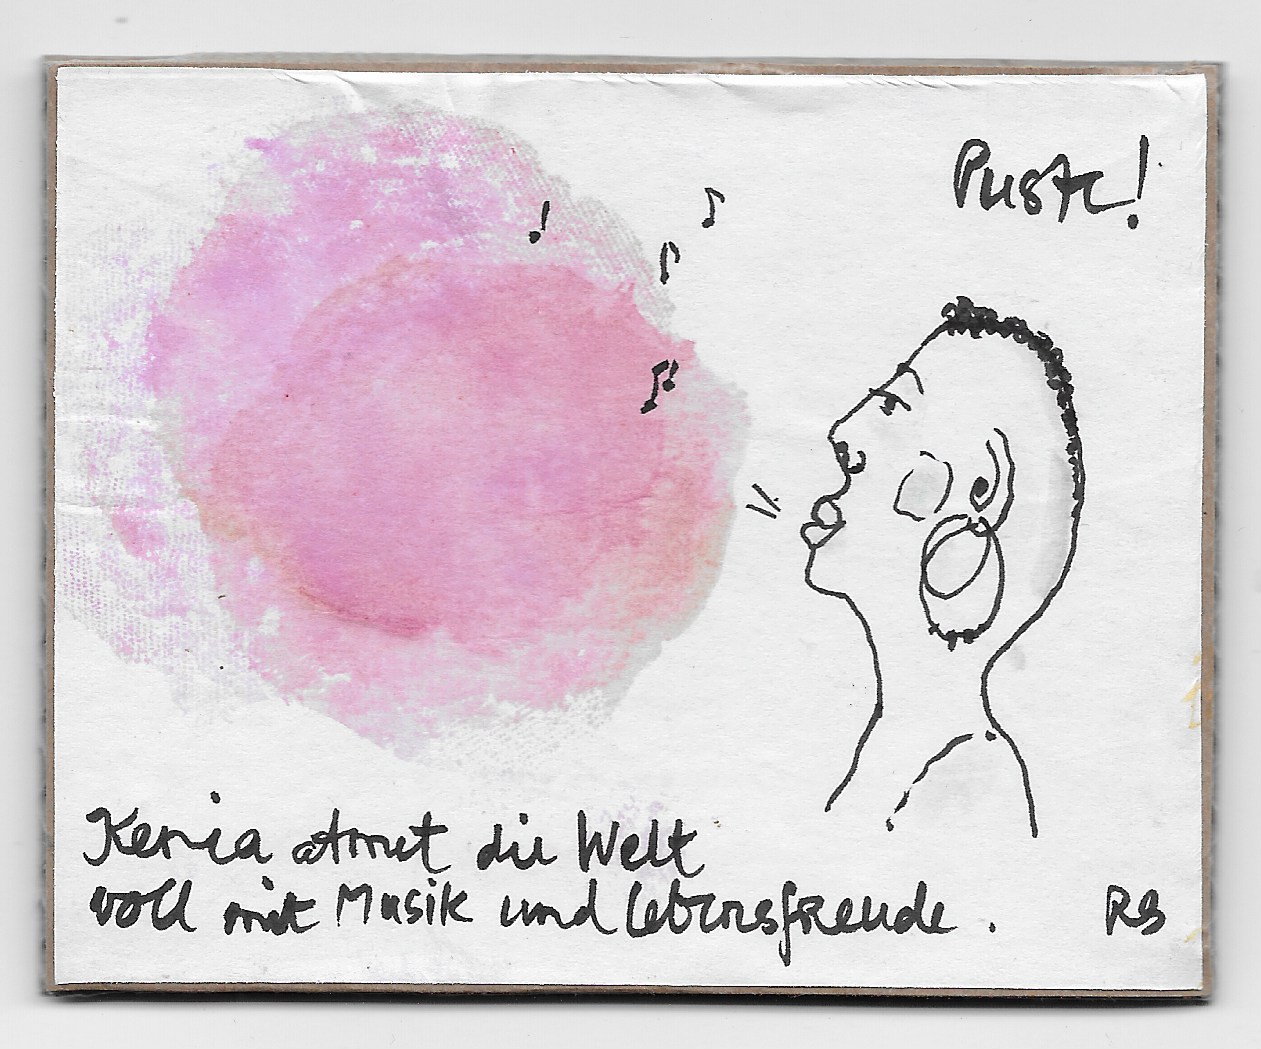 Puste!
Kenia atmet die Welt
voll mit Musik und Lebensfreude.
RB